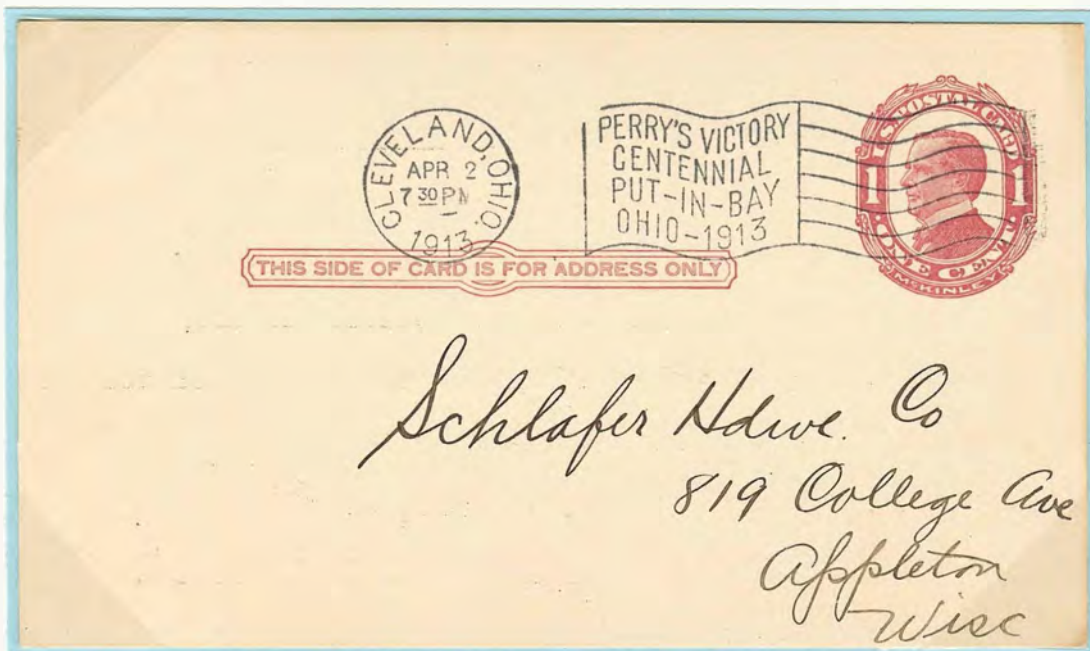 CLEVELAND, OHIO.
APR 2
7 30 PM
1913
PERRY'S VICTORY
CENTENNIAL
PUT-IN-BAY
OHIO-1913
U.S. POSTAL CARD
1 1
ONE CENT
McKINLEY
THIS SIDE OF CARD IS FOR ADDRESS ONLY
Schlafer Hdwe. Co
819 College Ave
Appleton
Wisc